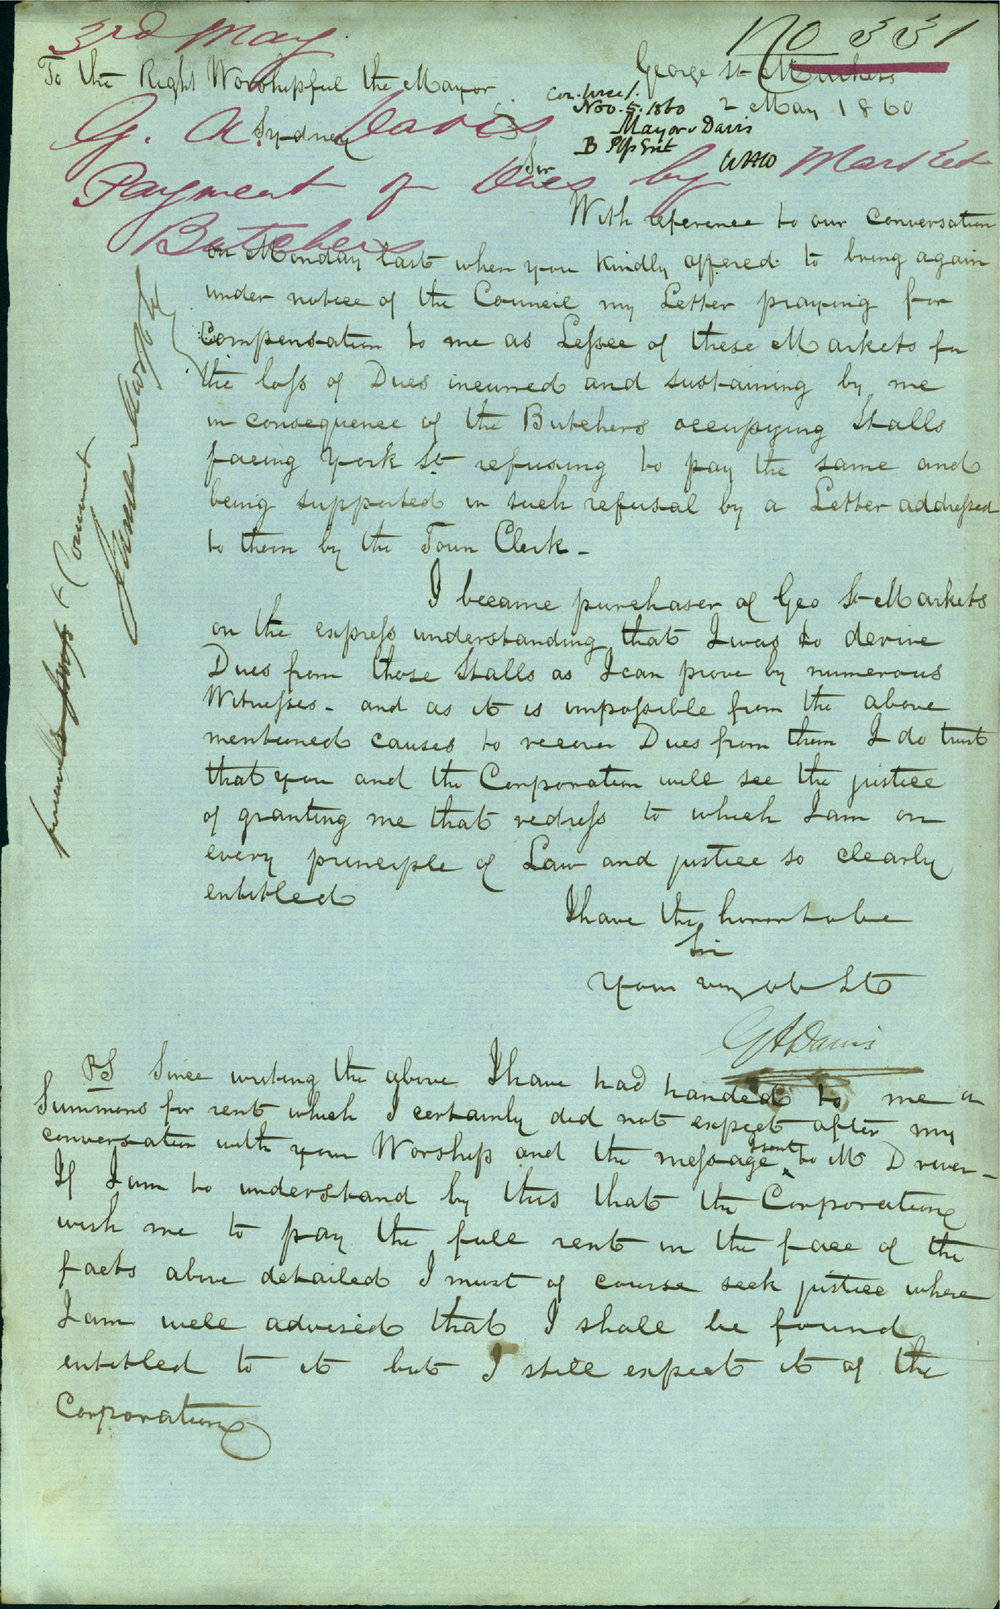 3rd May
No 331
To the Right Worshipful the Mayor
George St Markets
Nov. 5. 1860
2 May 1860
Sydney
Mayor v Davis
G. A. Davis
Sir
Payment of Dues by Market
Butchers
With reference to our Conversation
on Monday last when you kindly offered to bring again
under notice of the Council my Letter praying for
Compensation to me as Lessee of these Markets for
the loss of Dues incurred and sustaining by me
in consequence of the Butchers occupying Stalls
facing York St refusing to pay the same and
being supported in such refusal by a Letter addressed
to them by the Town Clerk -
I became purchaser of Geo St Markets
on the express understanding that I was to derive
Dues from those Stalls as I can prove by numerous
Witnesses - and as it is impossible from the above
mentioned causes to recover Dues from them I do trust
that you and the Corporation will see the justice
of granting me that redress to which I am on
every principle of Law and justice so clearly
entitled
I have the honor to be
Sir
Your very ob St
G A Davis
PS Since writing the above I have had handed to me a
Summons for rent which I certainly did not expect after my
conversation with your Worship and the message I sent to Mr Driver -
If I am to understand by this that the Corporation
wish me to pay the full rent in the face of the
facts above detailed I must of course seek justice where
I am well advised that I shall be found
entitled to it but I still expect it of the
Corporation